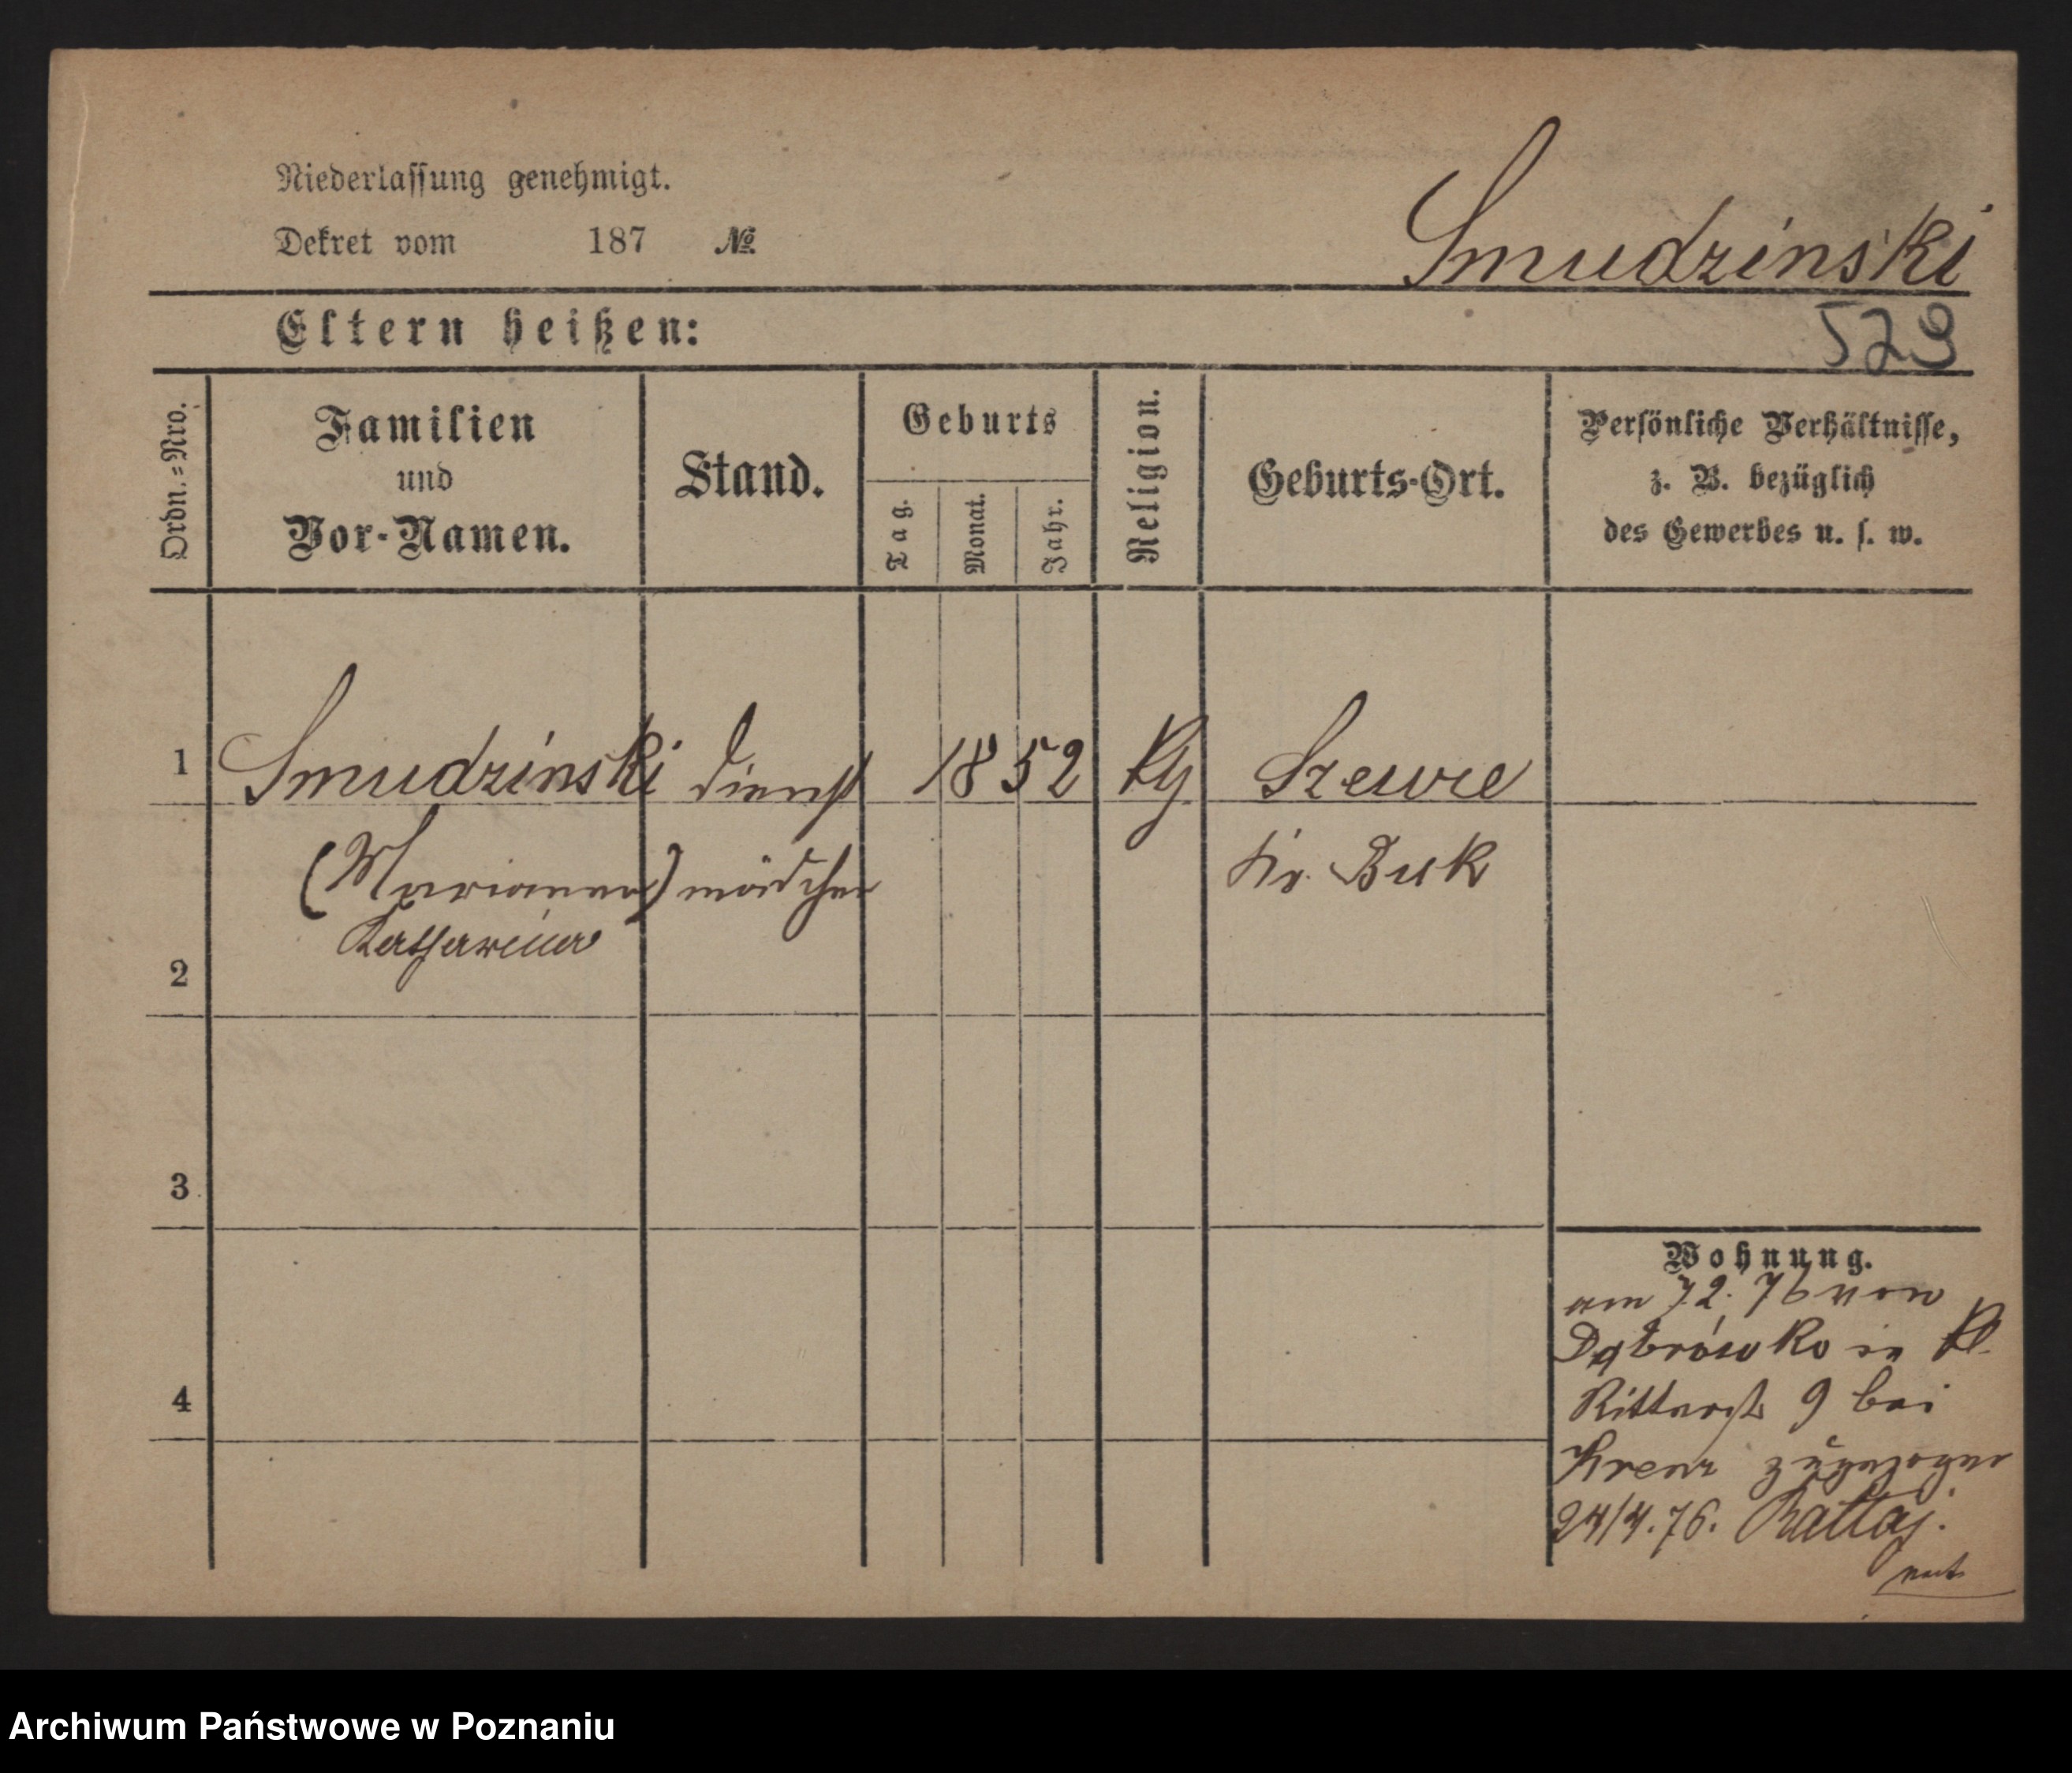 Niederlassung genehmigt.
Dekret vom 187 №
Smudzinski
Eltern heißen:
573
Ordn.-Nro.
Familien
und
Vor-Namen.
Stand.
Geburts
Tag.
Monat.
Jahr.
Religion.
Geburts-Ort.
Persönliche Verhältnisse,
z. B. bezüglich
des Gewerbes u. s. w.
1 Smudzinski Dienst 1852 Szewce
(Marianna) mädchen Kr. Buk
Katharina
2
3
4
Wohnung.
am 7.2.76 von
Dąbrówko in Kl.
Ritterstr 9 bei
zugezogen
24/4.76. Rattaj.
Archiwum Państwowe w Poznaniu